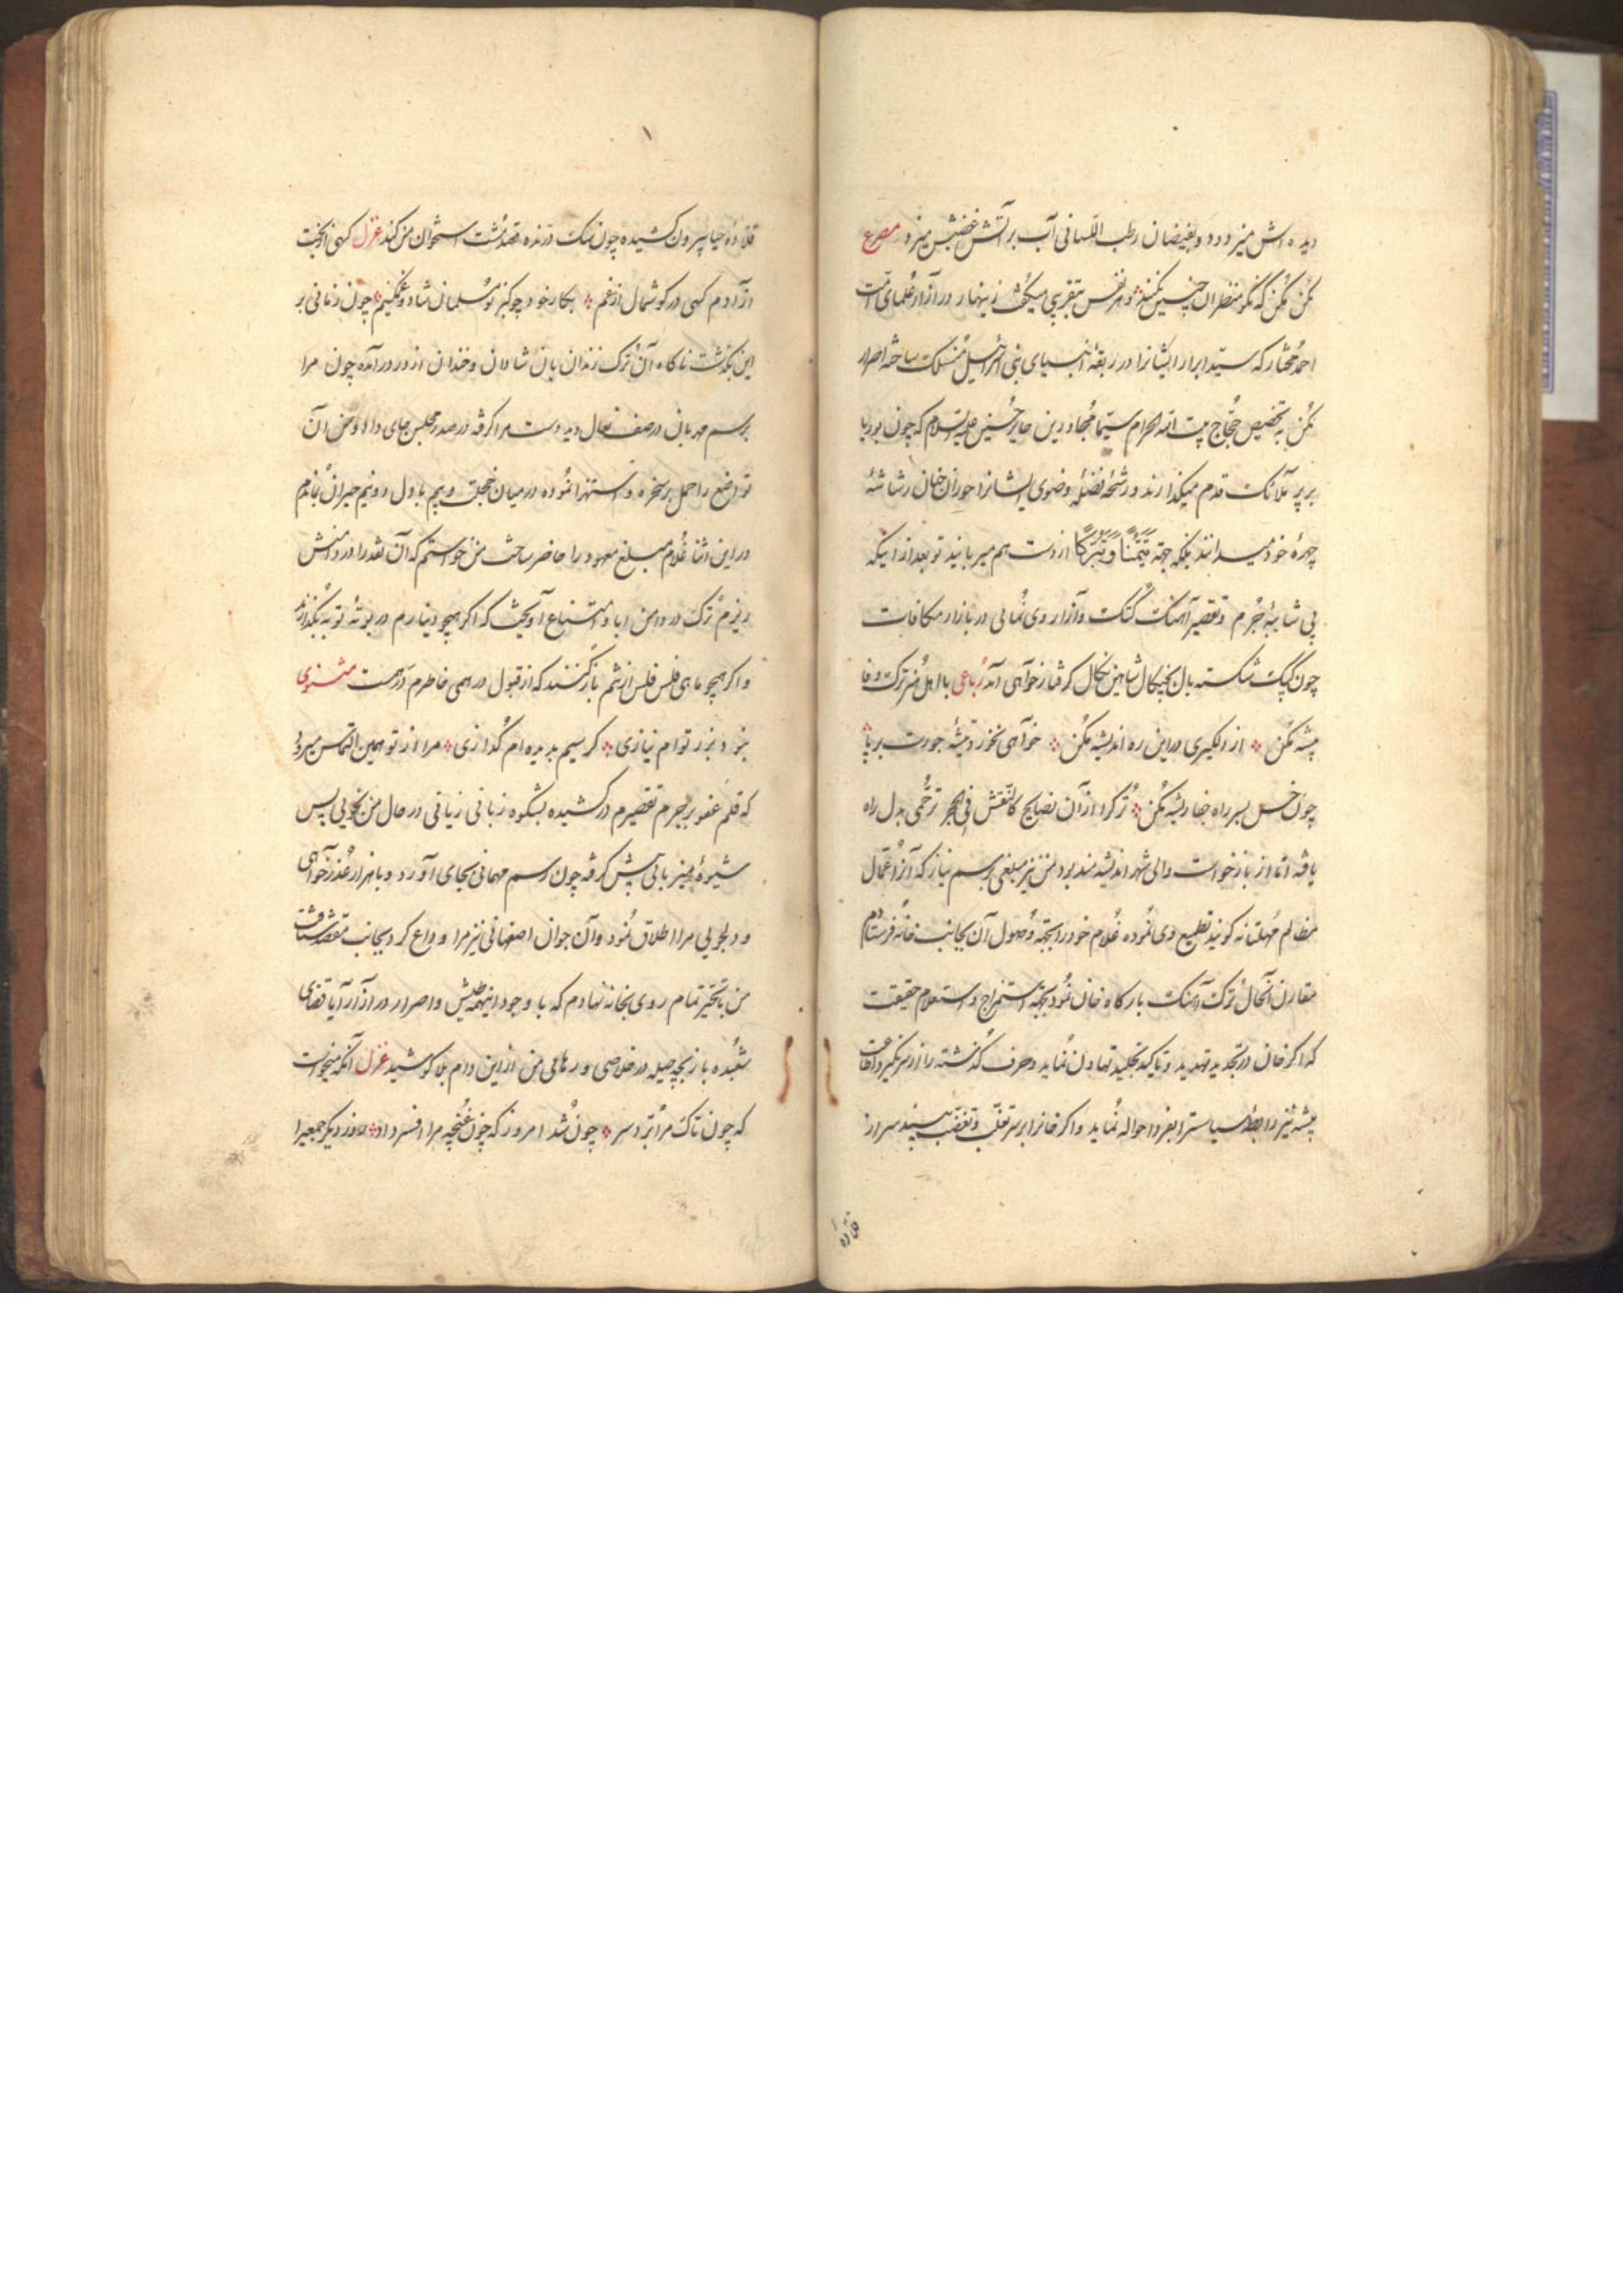 دیده اش میزدود و بفیضان رطب اللسانی آب بر آتش غضبش میزد مصرع
مکن مکن که نکو منظران چنین نکنند و هر نفس بتقریبی میکفت زینهار در آزار علمای امت
احمد مختار که سید ابرار ایشانرا در ربقهٔ انبیای بنی اسرائیل منسلک ساخته اصرار
مکن به تخصیص حجاج بیت الله الحرام سیما مجاورین حایر حسین علیه السلام که چون بوریا
بر پر ملائک قدم میکذارند و رشحه فضلهٔ وضوی ایشانرا حوران جنان رشاشهٔ
چهرهٔ خود میدانند بلکه جهة تیمنا و تبرکا از دست هم میربایند تو بعد از اینکه
بی شایبهٔ جرم و تقصیر آهنک کتک و آزار وی نمائی در بازار مکافات
چون کبک شکسته بال بچنکال شاهین نکال کرفتار خواهی آمد رباعی با اهل هنر ترک وفا
پیشه مکن از دلکیری در این ره اندیشه مکن خواهی نخورد تیشهٔ جورت بر پا
چون خس بسر راه جفا ریشه مکن ترک را از آن نصایح کالنقش فی الحجر ترحمی بدل راه
یافته اما از بازخواست والی شهر اندیشه مند بود من نیز مبلغی برسم نیاز که آنرا عمال
مظالم مهلتانه کویند تطمیع وی نموده غلام خود را بجهة وصول آن بجانب خانه فرستادم
مقارن آنحال ترک آهنک بارکاه خان نمود بجهة استمزاج و استعلام حقیقت
که اکر خان در تجدید تهدید و تاکید تجلید تهاون نماید و حرف کذشته را از سر نکیرد آن
پیشه نیز رابطهٔ سیاسترا بفردا حواله نماید و اکر خانرا بر سر تقلب و تغضب بیند سر از
قلاده
قلادهٔ حیا بیرون کشیده چون سک درنده قصد مشت استخوان من کند غزل کهی از بخت
آزادم کهی در کوشمال از غم بکار خود چو کبر نو مسلمان شاد و غمکینم چون زمانی بر
این بکذشت ناکاه آن ترک زندان بان شادان و خندان از در درآمده چون مرا
برسم مهربان در صف نعال دید دست مرا کرفته در صدر مجلس جای داد و من آن
تواضع را حمل بر سخره و استهزا نموده در میان خجلت و بیم با دل دو نیم حیران بماندم
در این اثنا غلام مبلغ معهود را حاضر ساخت من خواستم که آن نقد را در دامنش
ریزم ترک در دامن ابا و امتناع آویخت که اکر همچو دینارم در بوتهٔ توبه بکدازند
و اکر همچو ماهی فلس فلس از پشم باز کنند که از قبول درهمی خاطرم درهمست مثنوی
نبود بزر توام نیازی کر سیم بدیده ام کدازی مرا از تو همین التماس میرود
که قلم عفو بر جرم تقصیرم درکشیده بشکوه زبانی زیانی در حال من نجویی پس
شیوهٔ میزبانی پیش کرفته چون رسم مهمانی بجای آورد و با هزار عذرخواهی
و دلجویی مرا اطلاق نمود و آن جوان اصفهانی نیز مرا وداع کرد بجانب مقصد شتافت
من با تحیر تمام روی بخانه نهادم که با وجود اینهمه طیش و اصرار در آزار آیا قضای
شعبده باز بچه حیله در خلاصی و رهایی من از این دام بلا کوشید غزل آنکه میخواست
که چون تاک مرا برد سر چون شد امروز که چون غنچه مرا افسر داد روز دیکر جمعیرا